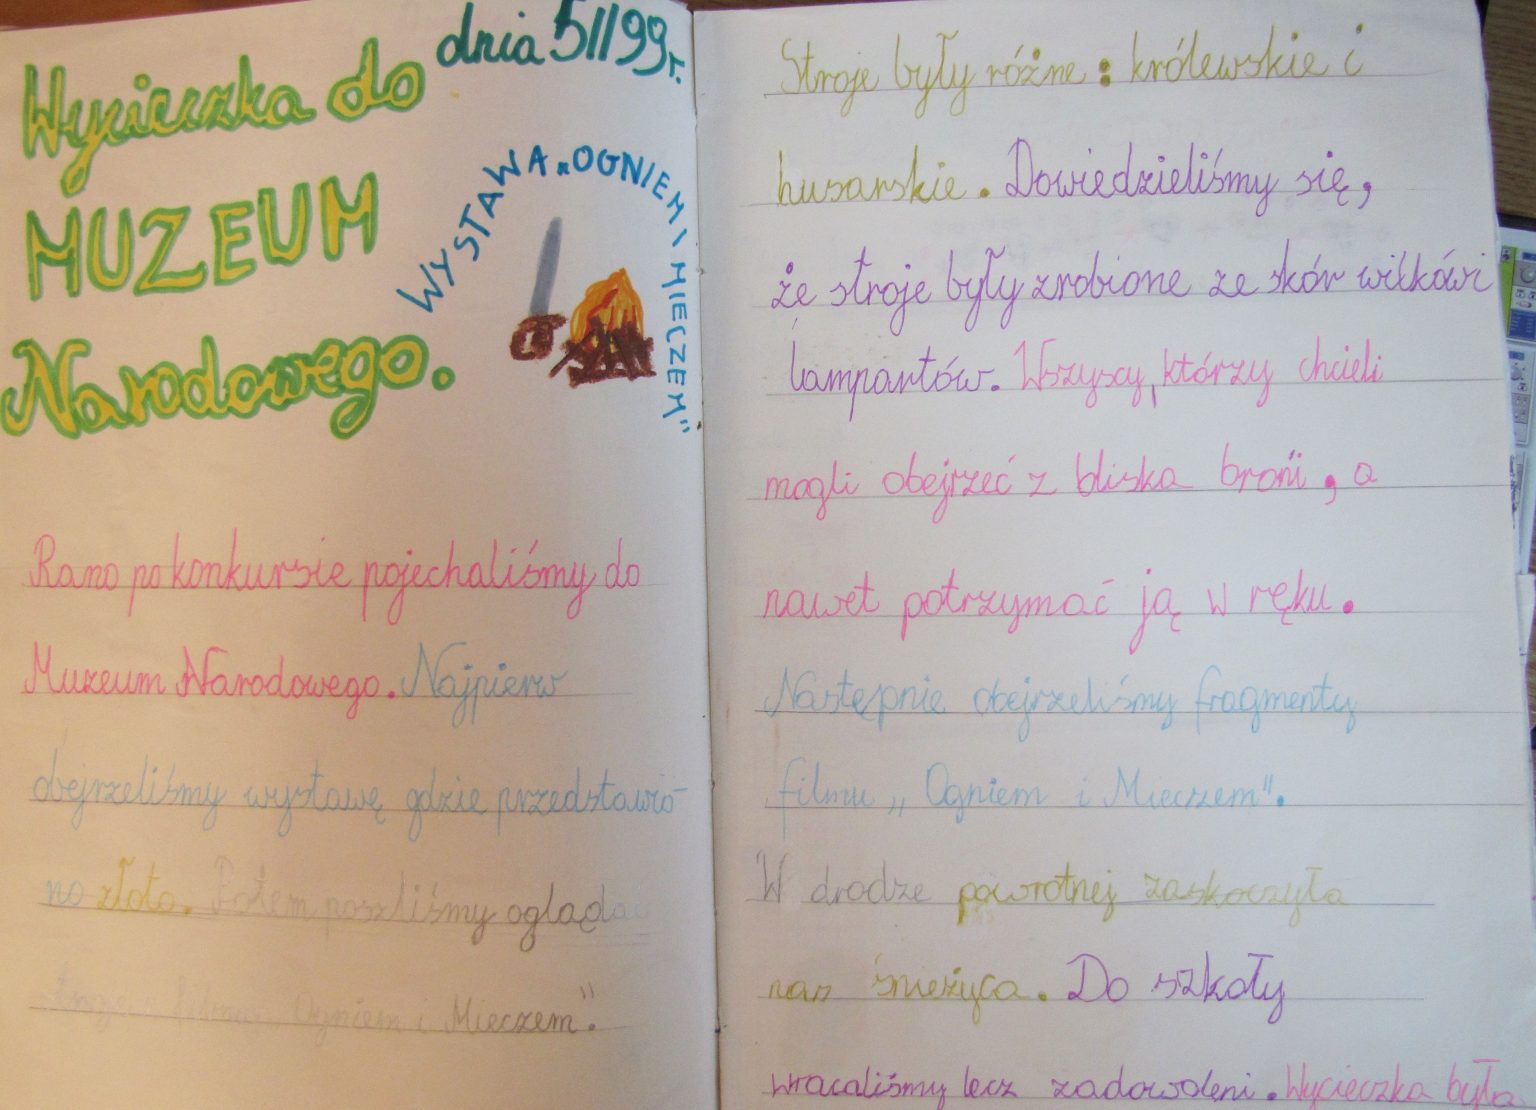 Wycieczka do
dnia 5II99r.
MUZEUM
Narodowego.
WYSTAWA „OGNIEM I MIECZEM"
Rano po konkursie pojechaliśmy do
Muzeum Narodowego. Najpierw
obejrzeliśmy wystawę gdzie przedstawio-
no złoto. Potem poszliśmy oglądać
stroje z filmu „Ogniem i Mieczem".
Stroje były różne: królewskie i
husarskie. Dowiedzieliśmy się,
że stroje były zrobione ze skór wilków i
lampartów. Wszyscy, którzy chcieli
mogli obejrzeć z bliska broń, a
nawet potrzymać ją w ręku.
Następnie obejrzeliśmy fragmenty
filmu „Ogniem i Mieczem".
W drodze powrotnej zaskoczyła
nas śnieżyca. Do szkoły
wracaliśmy lecz zadowoleni. Wycieczka była